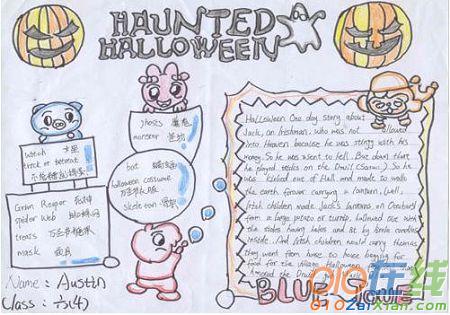 HAUNTED
HALLOWEEN
witch 女巫
trick or treat
不给糖就捣蛋
Grim Reaper 死神
spider web 蜘蛛网
treats 万圣节糖果
mask 面具
ghosts 魔鬼
monster 怪物
bat 蝙蝠
halloween costume
万圣节服装
skeleton 骷髅
Halloween One day story about
Jack, an Irishman, who was not allowed
into Heaven because he was stingy with his
money. So he was sent to hell. But down that
he played tricks on the Devil (Satan). So he
kicked out of Hell and made to walk
the earth forever carrying a lantern.
Irish children made Jack's lanterns on October31
from a large potato or turnip, hollowed out with
the sides having holes and lit by little candles
inside. And Irish children would carry them as
they went from house to house begging for
food for the village Halloween
honored the Druid god
Name: Austin
Class: 六(4)
BLUE
010在线
010ZaiXian.Com